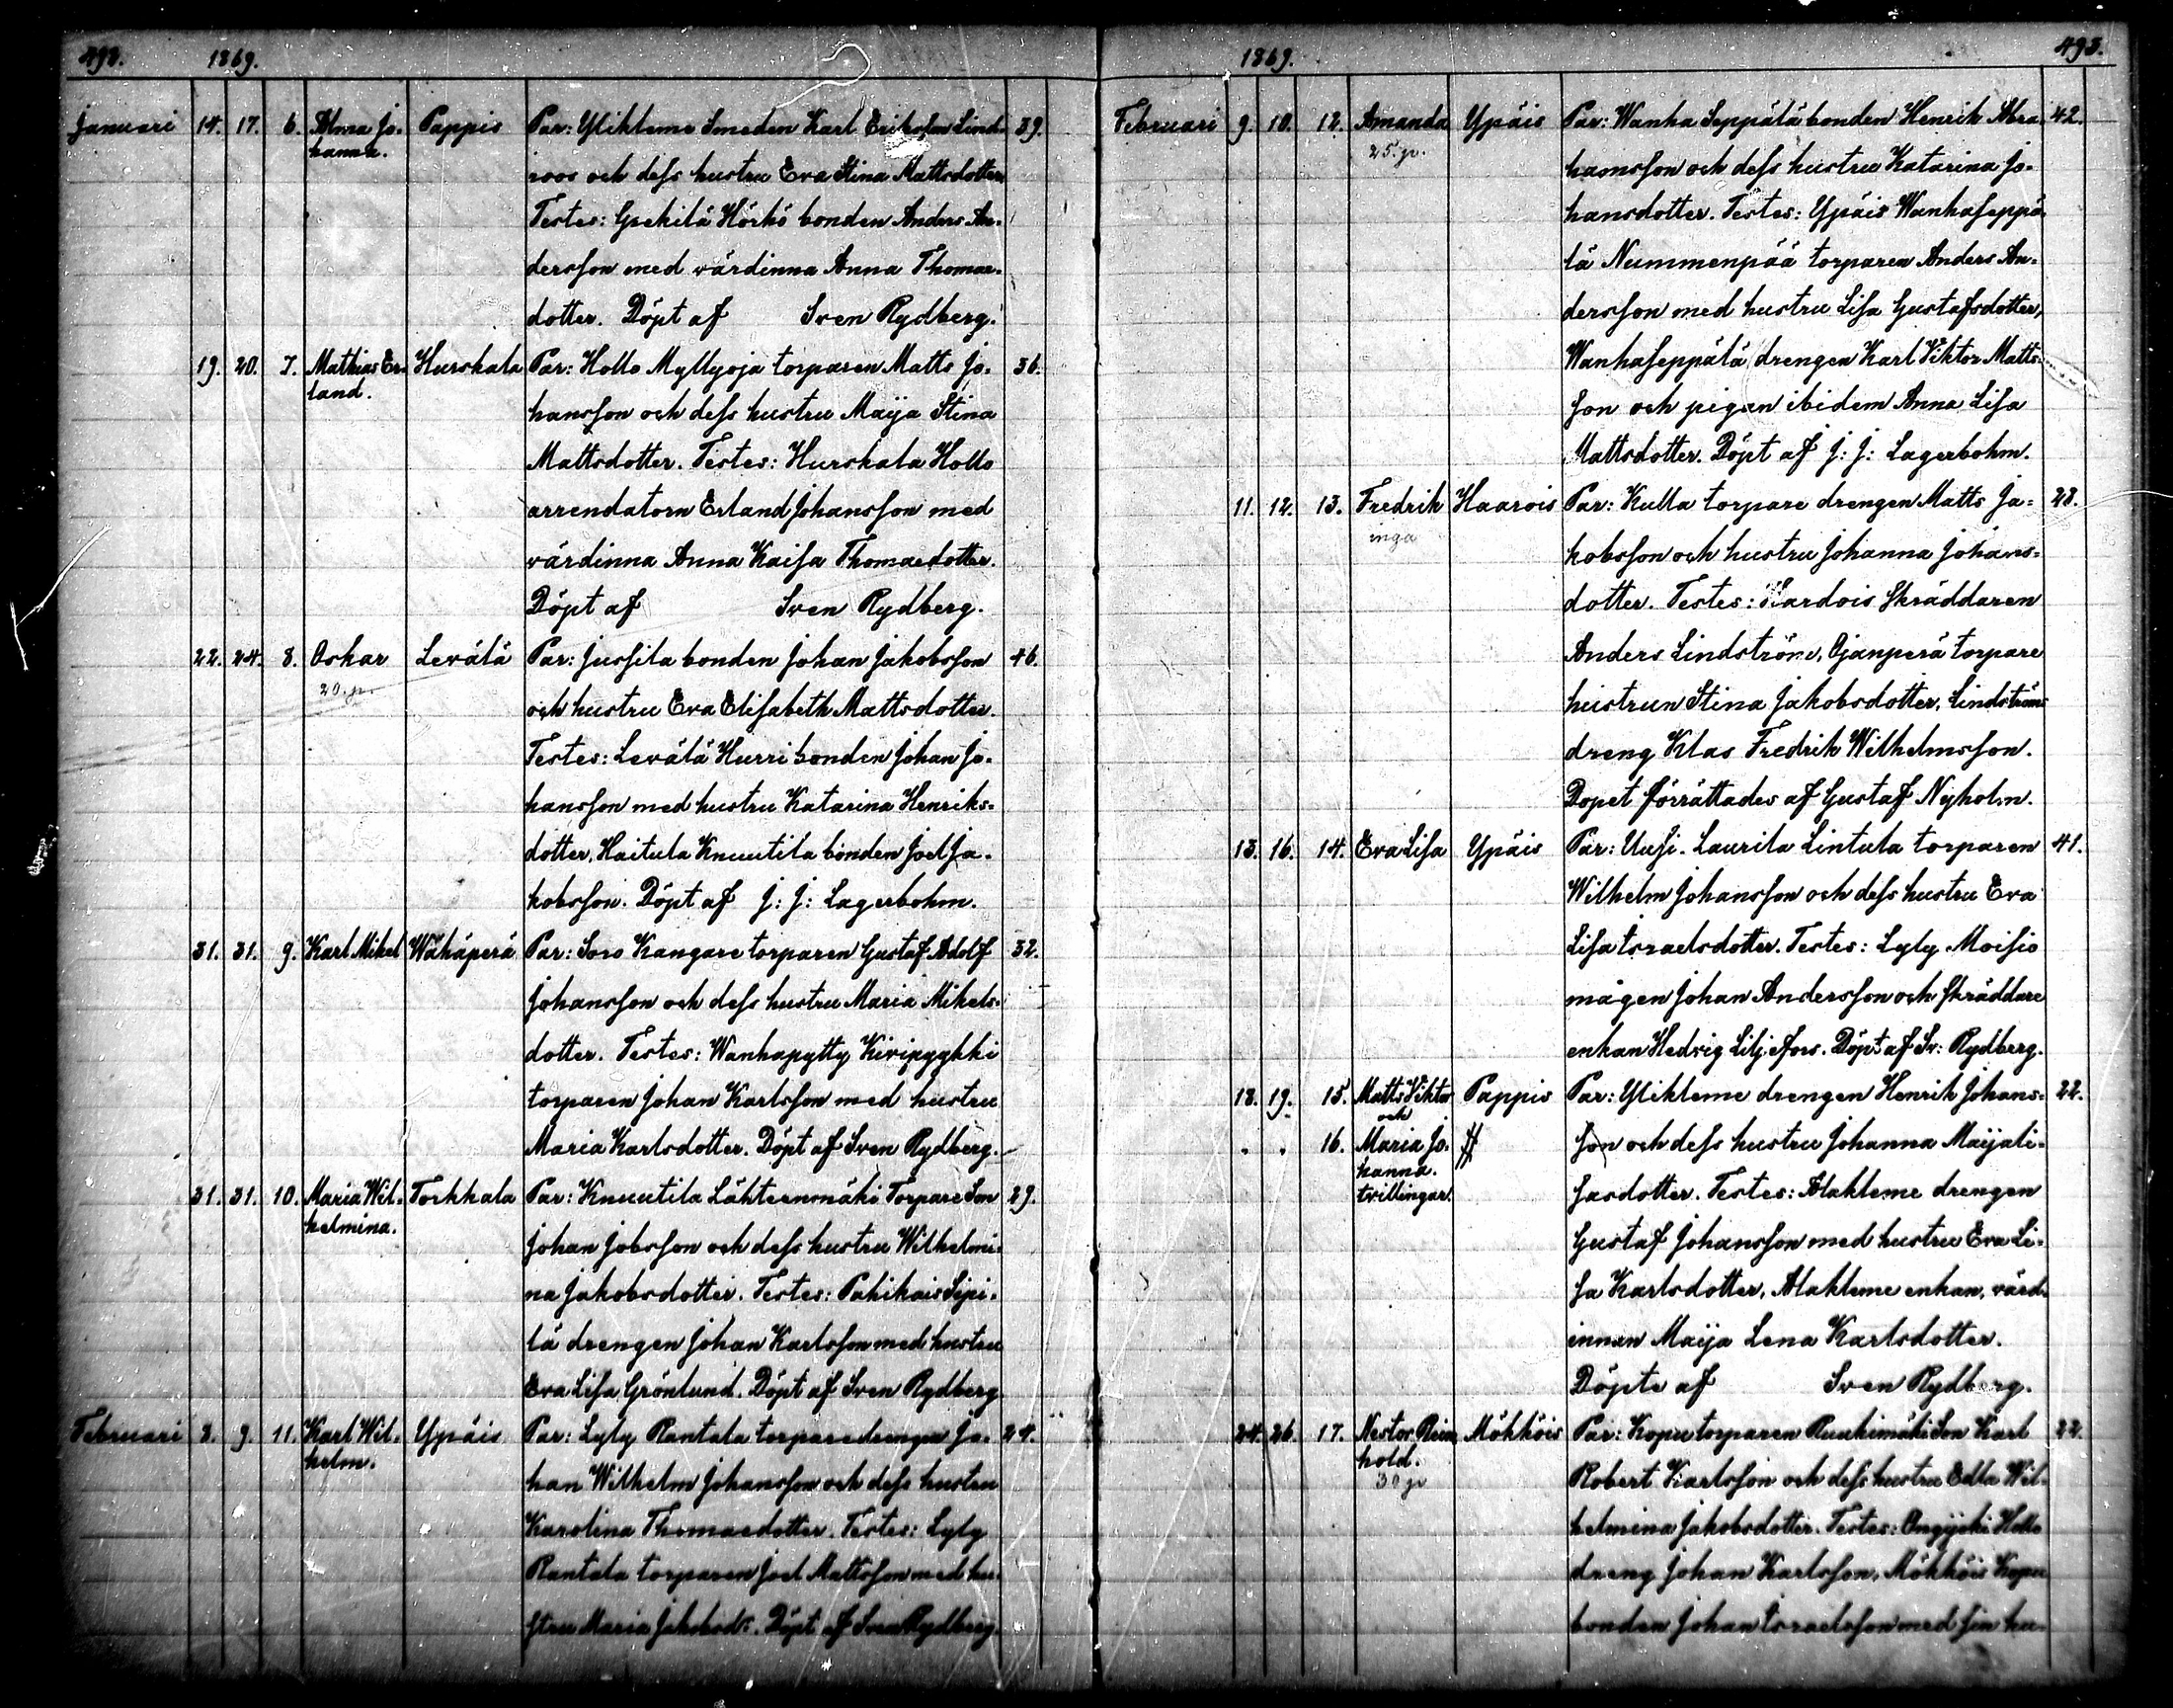 492. 1869.
Januari 14. 17. 6. Alma Jo- Pappis Par: Yliklemo Smeden Karl Eriksson Lind- 39.
hanna.
roos och dess hustru Eva Stina Mattsdotter
Testes: Grekilä Hörkö bonden Anders An-
dersson med värdinna Anna Thomas-
dotter. Döpt af Sven Rydberg.
19. 20. 7. Mathias Er- Hurskala Par: Hollo Myllyoja torparen Matts Jo- 36.
land.
hansson och dess hustru Maija Stina
Mattsdotter. Testes: Hurskala Hollo
arrendatorn Erland Johansson med
värdinna Anna Kaisa Thomasdotter.
Döpt af Sven Rydberg.
22. 24. 8. Oskar Levälä Par: Jussila bonden Johan Jakobsson 46.
20. p.
och hustru Eva Elisabeth Mattsdotter.
Testes: Levälä Hurri bonden Johan Jo-
hansson med hustru Katarina Henriks-
dotter, Haitula Knuutila bonden Joel Ja-
kobsson. Döpt af J: J: Lagerbohm.
31. 31. 9. Karl Mikel Wähäperä Par: Soro Kangare torparen Gustaf Adolf 32.
Johansson och dess hustru Maria Mikels-
dotter. Testes: Wanhapytty Kiripyykki
torparen Johan Karlsson med hustru
Maria Karlsdotter. Döpt af Sven Rydberg.
31. 31. 10. Maria Wil- Torkkala Par: Knuutila Lähteenmäki Torpare Son 29.
helmina.
Johan Jobsson och dess hustru Wilhelmi-
na Jakobsdotter. Testes: Pahikais Sipi-
lä drengen Johan Karlsson med hustru
Eva Lisa Grönlund. Döpt af Sven Rydberg
Februari 8. 9. 11. Karl Wil- Ypäis Par: Lyly Rantala torparedrengen Jo- 24.
helm.
han Wilhelm Johansson och dess hustru
Karolina Thomasdotter. Testes: Lyly
Rantala torparen Joel Mattsson med hu-
stru Maria Jakobsdr. Döpt af Sven Rydberg
1869. 493.
Februari 9. 10. 12. Amanda Ypäis Par: Wanha Seppälä bonden Henrik Abra- 42.
25. p.
hamsson och dess hustru Katarina Jo-
hansdotter. Testes: Ypäis Wanhaseppä-
lä Nummenpää torparen Anders An-
dersson med hustru Lisa Gustafsdotter,
Wanhaseppälä drengen Karl Viktor Matts-
son och pigan ibidem Anna Lisa
Mattsdotter. Döpt af J: J: Lagerbohm.
11. 12. 13. Fredrik Haarois Par: Kulla torpare drengen Matts Ja- 28.
inga
kobsson och hustru Johanna Johans-
dotter. Testes: Saarois skräddaren
Anders Lindström, Ojanperä torpare
hustrun Stina Jakobsdotter, Lindströms
dreng Klas Fredrik Wilhelmsson.
Dopet förrättades af Gustaf Nyholm.
13. 16. 14. Eva Lisa Ypäis Par: Uusi-Laurila Lintula torparen 41.
Wilhelm Johansson och dess hustru Eva
Lisa Israelsdotter. Testes: Lyly Moisio
mågen Johan Andersson och skräddare
enkan Hedvig Liljefors. Döpt af Sv: Rydberg.
18. 19. 15. Matts Viktor Pappis Par: Yliklemo drengen Henrik Johans- 22.
och
" " 16. Maria Jo- " son och dess hustru Johanna Maijali-
hanna.
tvillingar.
sasdotter. Testes: Alaklemo drengen
Gustaf Johansson med hustru Eva Li-
sa Karlsdotter, Alaklemo enkan, värd-
innan Maija Lena Karlsdotter.
Döpte af Sven Rydberg.
24. 26. 17. Nestor Rein- Mökköis Par: Kopu torparen Ruukimäki Son Karl 22.
hold.
30 p
Robert Karlsson och dess hustru Edla Wil-
helmina Jakobsdotter. Testes: Hollo
dreng Johan Karlsson, Mökköis Kopu
bonden Johan Israelsson med sin hu-